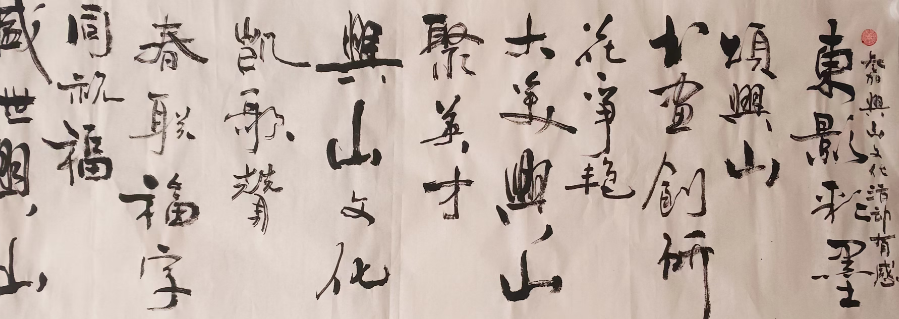 興山文化活动有感
東影彩墨
頌興山
书畫創研
花爭艳
大美興山
聚英才
興山文化
凱歌贊
春联福字
同祝福
盛世興山